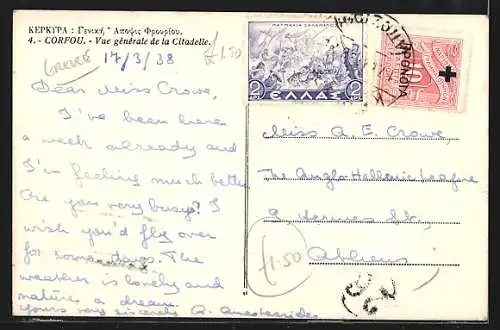 ΚΕΡΚΥΡΑ : Γενική Ἄποψις Φρουρίου.
4. - CORFOU. - Vue générale de la Citadelle.
17/3/38
£1.50
Dear Miss Crowe,
I've been here
a week already and
I'm feeling much better
Are you very busy? I
wish you'd fly over
for some days. The
weather is lovely and
nature a dream.
Yours very sincerely A.
ΝΑΥΜΑΧΙΑ ΣΑΛΑΜΙΝΟΣ
2 ΕΛΛΑΣ 2
10
Miss A. E. Crowe
The Anglo-Hellenic League
9 Hermes St,
Athens
£1.50